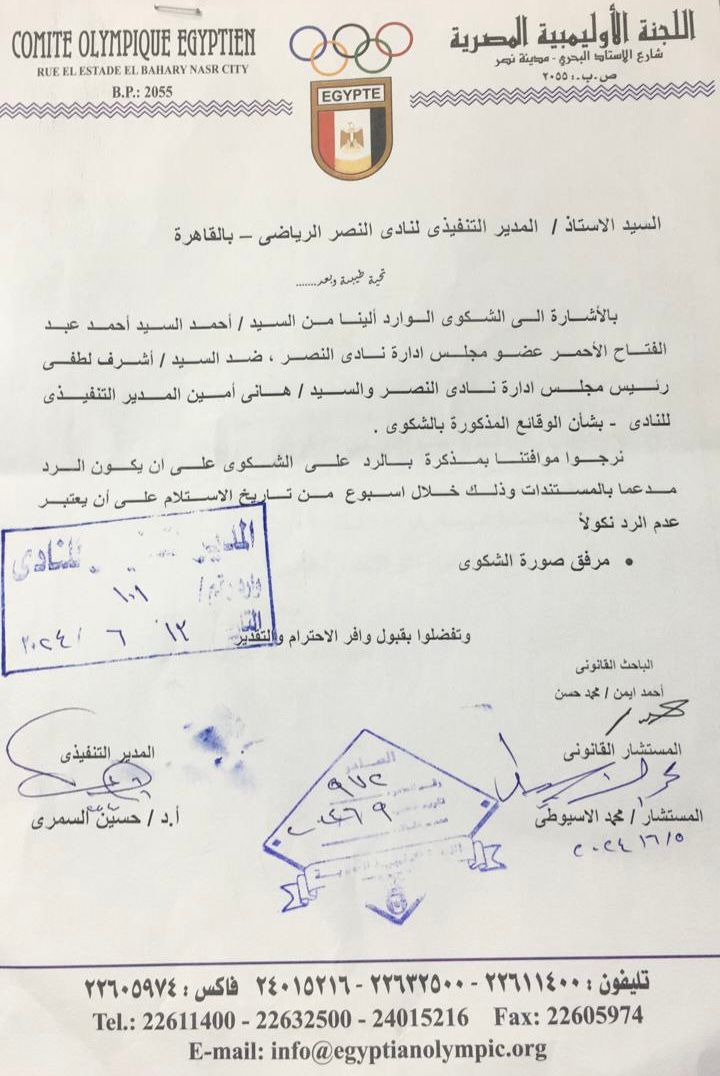 COMITE OLYMPIQUE EGYPTIEN
RUE EL ESTADE EL BAHARY NASR CITY
B.P.: 2055
EGYPTE
اللجنة الأوليمبية المصرية
شارع الاستاد البحري - مدينة نصر
ص.ب.: ٢٠٥٥
السيد الاستاذ / المدير التنفيذى لنادى النصر الرياضى – بالقاهرة
تحية طيبة وبعد.......
بالأشارة الى الشكوى الوارد ألينا من السيد / أحمد السيد أحمد عبد
الفتاح الأحمر عضو مجلس ادارة نادى النصر ، ضد السيد / أشرف لطفى
رئيس مجلس ادارة نادى النصر والسيد / هانى أمين المدير التنفيذى
للنادى - بشأن الوقائع المذكورة بالشكوى .
نرجوا موافتنا بمذكرة بالرد على الشكوى على ان يكون الرد
مدعما بالمستندات وذلك خلال اسبوع من تاريخ الاستلام على أن يعتبر
عدم الرد نكولاً
• مرفق صورة الشكوى
المدير للنادى
وارد رقم / ١٠١
١٣ / ٦ / ٢٠٢٤
وتفضلوا بقبول وافر الاحترام والتقدير
الباحث القانونى
أحمد ايمن / محمد حسن
المستشار القانونى
المستشار / محمد الاسيوطى
٢٠٢٤/٦/٥
المدير التنفيذى
أ.د / حسين السمرى
الصادر
٩٧٢
تليفون : ٢٢٦١١٤٠٠ - ٢٢٦٣٢٥٠٠ - ٢٤٠١٥٢١٦ فاكس : ٢٢٦٠٥٩٧٤
Tel.: 22611400 - 22632500 - 24015216 Fax: 22605974
E-mail: info@egyptianolympic.org